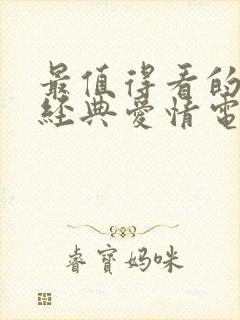 最值得看的
經典愛情電
睿寶媽咪